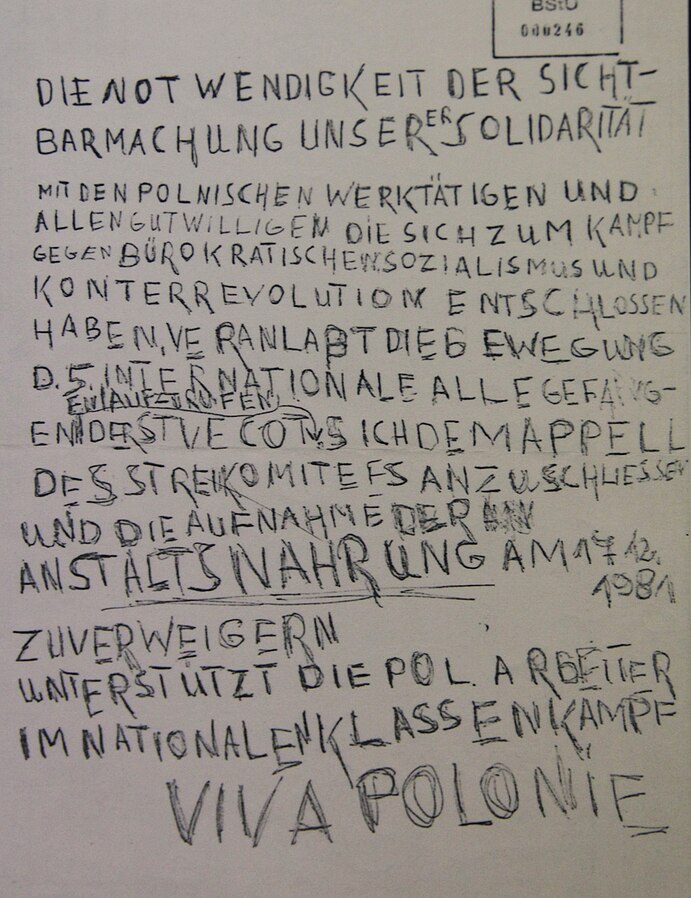 BStU
000246
DIE NOTWENDIGKEIT DER SICHT-
BARMACHUNG UNSERER SOLIDARITÄT
MIT DEN POLNISCHEN WERKTÄTIGEN UND
ALLEN GUTWILLIGEN DIE SICH ZUM KAMPF
GEGEN BÜROKRATISCHEN SOZIALISMUS UND
KONTERREVOLUTION ENTSCHLOSSEN
HABEN, VERANLAßT DIE BEWEGUNG
D. 5. INTERNATIONALE ALLE GEFANG-
ENAUFZURUFEN
ENDER STVE COTTBUS SICH DEM APPELL
DES STREIKOMITEES ANZUSCHLIESSEN
UND DIE AUFNAHME DER
ANSTALTSNAHRUNG AM 17.12.
1981
ZU VERWEIGERN
UNTERSTÜTZT DIE POL. ARBEITER
IM NATIONALEN KLASSENKAMPF
VIVA POLONIE